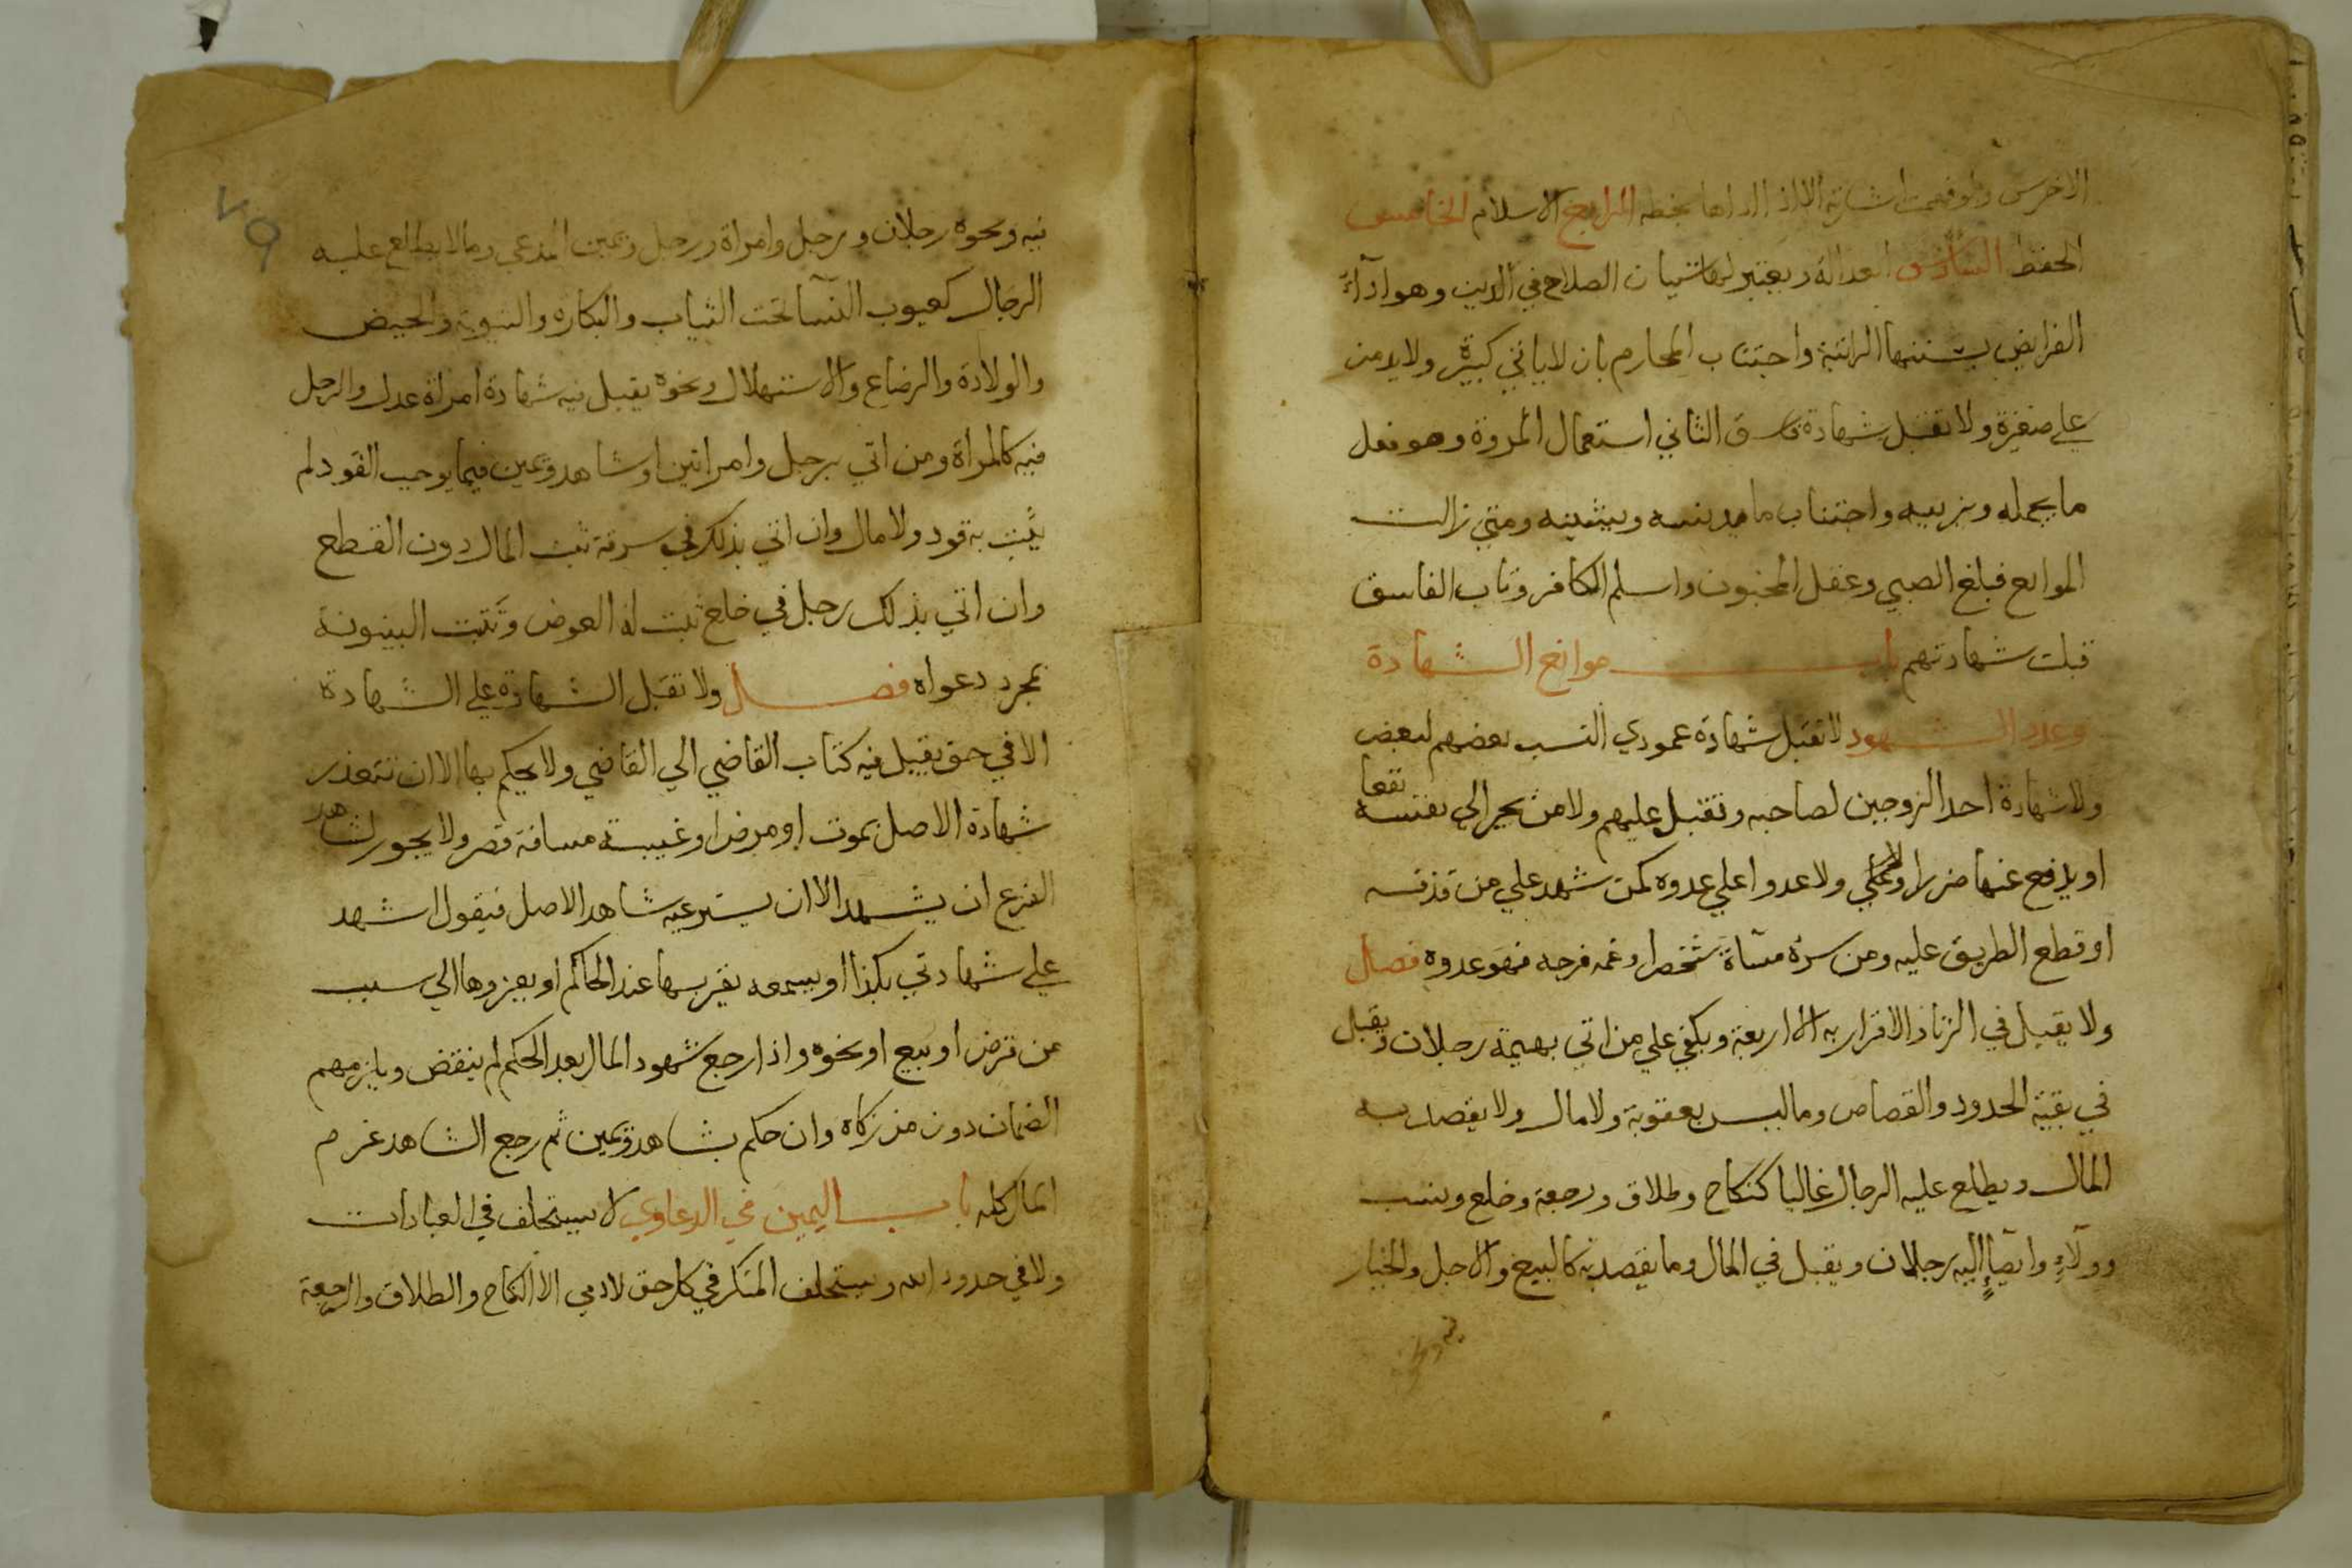 الاخرس ولو فهمت اشارته الا اذا اداها بخطه الرابع الاسلام الخامس
الحفظ السادس العدالة ويعتبر لها شيان الصلاح في الدين وهو ادآء
الفرايض بسننها الراتبة واجتناب المحارم بان لا ياتي كبيرة ولا يدمن
علي صغيرة ولا تقبل شهادة فاسق الثاني استعمال المروة وهو فعل
ما يجمله ويزينه واجتناب ما يدنسه ويشينه ومتي زالت
الموانع فبلغ الصبي وعقل المجنون واسلم الكافر وتاب الفاسق
قبلت شهادتهم باب موانع الشهادة
وعدد الشهود لا تقبل شهادة عمودي النسب بعضهم لبعض
ولا شهادة احد الزوجين لصاحبه وتقبل عليهم ولا من يجر الي نفسه نفعا
او يدفع عنها ضررا ولا عدوا علي عدوه كمن شهد علي من قذفه
او قطع الطريق عليه ومن سره مسآة شخص او غمه فرحه فهو عدوه فصل
ولا يقبل في الزنا والاقرار به الا اربعة ويكفي علي من اتي بهيمة رجلان ويقبل
في بقية الحدود والقصاص وما ليس بعقوبة ولا مال ولا يقصد به
المال ويطلع عليه الرجال غالبا كنكاح وطلاق ورجعة وخلع ونسب
وولآء وايصآء اليه رجلان ويقبل في المال وما يقصد به كالبيع والاجل والخيار
فيه ونحوه
٧٩
فيه ونحوه رجلان ورجل وامراة ورجل ويمين المدعي وما لا يطلع عليه
الرجال كعيوب النسآ تحت الثياب والبكاره والثيوبة والحيض
والولادة والرضاع والاستهلال ونحوه يقبل فيه شهادة امراة عدل والرجل
فيه كالمراة ومن اتي برجل وامراتين او شاهد ويمين فيما يوجب القود لم
يثبت به قود ولا مال وان اتي بذلك في سرقة ثبت المال دون القطع
وان اتي بذلك رجل في خلع ثبت له العوض وتثبت البينونة
بمجرد دعواه فصل ولا تقبل الشهادة علي الشهادة
الا في حق يقبل فيه كتاب القاضي الي القاضي ولا يحكم بها الا ان تتعذر
شهادة الاصل بموت او مرض او غيبة مسافة قصر ولا يجوز لشاهد
الفرع ان يشهد الا ان يسترعيه شاهد الاصل فيقول اشهد
علي شهادتي بكذا او يسمعه يقر بها عند الحاكم او يعزوها الي سبب
من قرض او بيع او نحوه واذا رجع شهود المال بعد الحكم لم ينقض ويلزمهم
الضمان دون من زكاه وان حكم بشاهد ويمين ثم رجع الشاهد غرم
المال كله باب اليمين في الدعاوي لا يستحلف في العبادات
ولا في حدود الله ويستحلف المنكر في كل حق لادمي الا النكاح والطلاق والرجعة